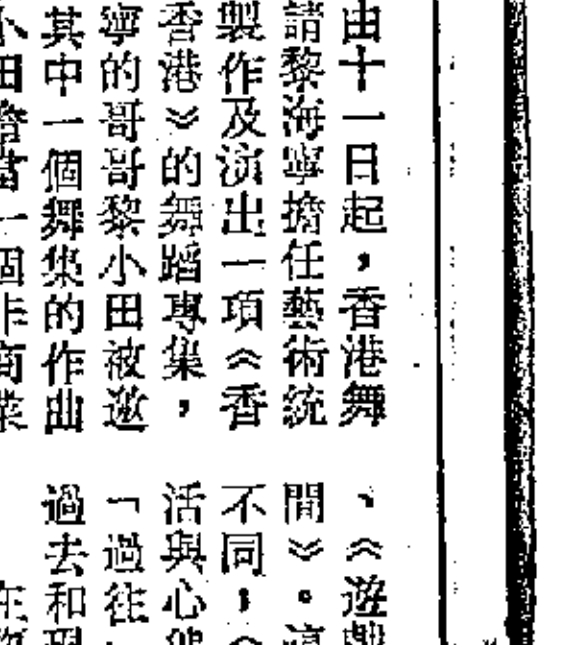 由十一日起，香港舞
請黎海寧擔任藝術統
製作及演出一項《香
香港》的舞蹈專集，
寧的哥哥黎小田被邀
其中一個舞集的作曲
小田
一個
、《遊戲
間》。
不同，《
活與心態
「過往
過去和現
在